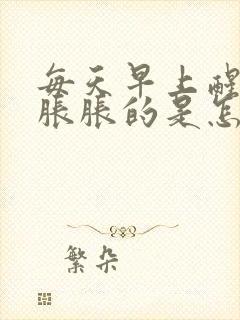 每天早上醒
胀胀的是怎
繁朵